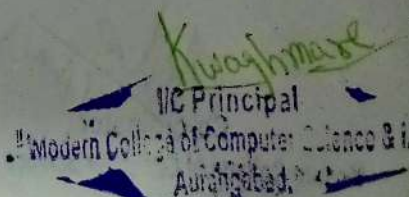 Kwaghmare
I/C Principal
Modern College of Computer Science & I.
Aurangabad.